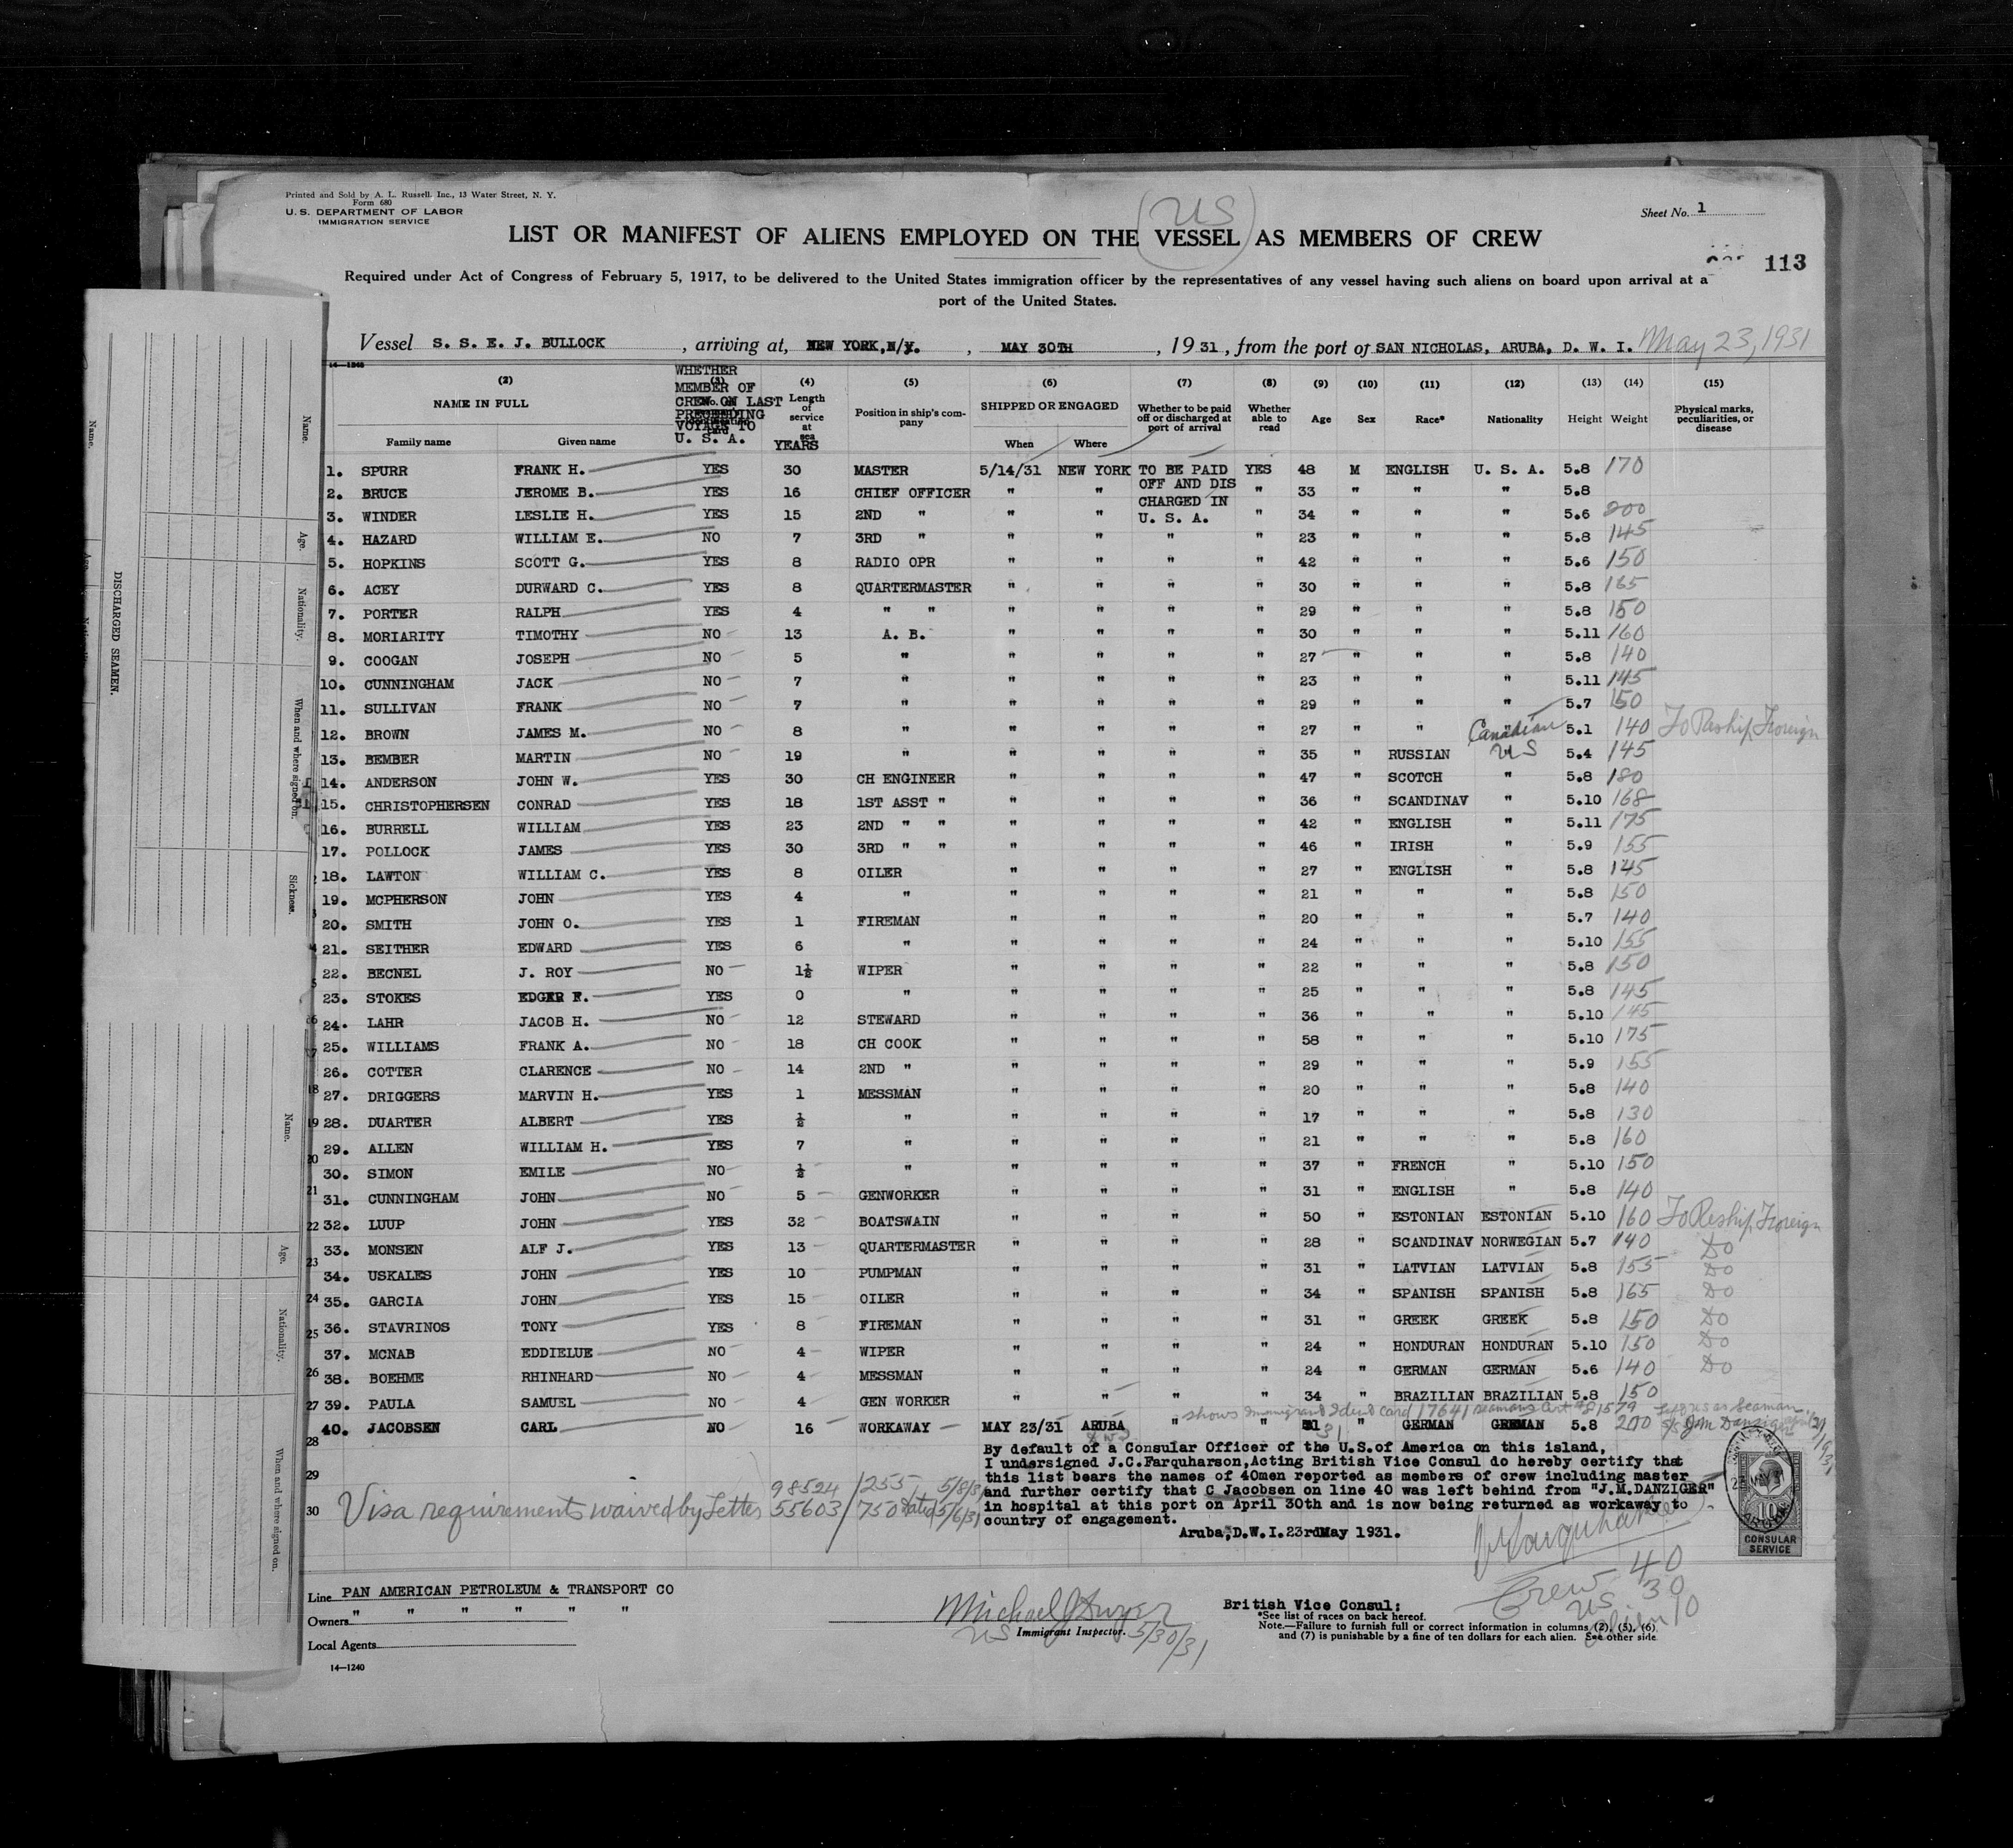 Printed and Sold by A. L. Russell, Inc., 13 Water Street, N. Y.
Form 680
U. S. DEPARTMENT OF LABOR
IMMIGRATION SERVICE
US
Sheet No. 1
LIST OR MANIFEST OF ALIENS EMPLOYED ON THE VESSEL AS MEMBERS OF CREW
113
Required under Act of Congress of February 5, 1917, to be delivered to the United States immigration officer by the representatives of any vessel having such aliens on board upon arrival at a
port of the United States.
Vessel S. S. E. J. BULLOCK, arriving at, NEW YORK,N/Y. , MAY 30TH , 1931, from the port of SAN NICHOLAS, ARUBA, D. W. I. May 23, 1931
14—1240
(2) NAME IN FULL Family name Given name
WHETHER MEMBER OF CREW ON LAST PRECEEDING VOYAGE TO U. S. A.
(4) Length of service at sea YEARS
(5) Position in ship's company
(6) SHIPPED OR ENGAGED When Where
(7) Whether to be paid off or discharged at port of arrival
(8) Whether able to read
(9) Age
(10) Sex
(11) Race*
(12) Nationality
(13) Height
(14) Weight
(15) Physical marks, peculiarities, or disease
1. SPURR FRANK H. YES 30 MASTER 5/14/31 NEW YORK TO BE PAID YES 48 M ENGLISH U. S. A. 5.8 170
OFF AND DIS
2. BRUCE JEROME B. YES 16 CHIEF OFFICER " " CHARGED IN " 33 " " " 5.8
3. WINDER LESLIE H. YES 15 2ND " " " U. S. A. " 34 " " " 5.6 200
4. HAZARD WILLIAM E. NO 7 3RD " " " " " 23 " " " 5.8 145
5. HOPKINS SCOTT G. YES 8 RADIO OPR " " " " 42 " " " 5.6 150
6. ACEY DURWARD C. YES 8 QUARTERMASTER " " " " 30 " " " 5.8 165
7. PORTER RALPH YES 4 " " " " " " 29 " " " 5.8 150
8. MORIARITY TIMOTHY NO 13 A. B. " " " " 30 " " " 5.11 160
9. COOGAN JOSEPH NO 5 " " " " " 27 " " " 5.8 140
10. CUNNINGHAM JACK NO 7 " " " " " 23 " " " 5.11 145
11. SULLIVAN FRANK NO 7 " " " " " 29 " " " 5.7 150
12. BROWN JAMES M. NO 8 " " " " " 27 " " Canadian 5.1 140 To Reship Foreign
13. BEMBER MARTIN NO 19 " " " " " 35 " RUSSIAN US 5.4 145
14. ANDERSON JOHN W. YES 30 CH ENGINEER " " " " 47 " SCOTCH " 5.8 180
15. CHRISTOPHERSEN CONRAD YES 18 1ST ASST " " " " " 36 " SCANDINAV " 5.10 168
16. BURRELL WILLIAM YES 23 2ND " " " " " " 42 " ENGLISH " 5.11 175
17. POLLOCK JAMES YES 30 3RD " " " " " " 46 " IRISH " 5.9 155
18. LAWTON WILLIAM C. YES 8 OILER " " " " 27 " ENGLISH " 5.8 145
19. MCPHERSON JOHN YES 4 " " " " " 21 " " " 5.8 150
20. SMITH JOHN O. YES 1 FIREMAN " " " " 20 " " " 5.7 140
21. SEITHER EDWARD YES 6 " " " " " 24 " " " 5.10 155
22. BECNEL J. ROY NO 1½ WIPER " " " " 22 " " " 5.8 150
23. STOKES EDGER F. YES 0 " " " " " 25 " " " 5.8 145
24. LAHR JACOB H. NO 12 STEWARD " " " " 36 " " " 5.10 145
25. WILLIAMS FRANK A. NO 18 CH COOK " " " " 58 " " " 5.10 175
26. COTTER CLARENCE NO 14 2ND " " " " " 29 " " " 5.9 155
27. DRIGGERS MARVIN H. YES 1 MESSMAN " " " " 20 " " " 5.8 140
28. DUARTER ALBERT YES ½ " " " " " 17 " " " 5.8 130
29. ALLEN WILLIAM H. YES 7 " " " " " 21 " " " 5.8 160
30. SIMON EMILE NO ½ " " " " " 37 " FRENCH " 5.10 150
31. CUNNINGHAM JOHN NO 5 GENWORKER " " " " 31 " ENGLISH " 5.8 140
32. LUUP JOHN YES 32 BOATSWAIN " " " " 50 " ESTONIAN ESTONIAN 5.10 160 To Reship Foreign
33. MONSEN ALF J. YES 13 QUARTERMASTER " " " " 28 " SCANDINAV NORWEGIAN 5.7 140 Do
34. USKALES JOHN YES 10 PUMPMAN " " " " 31 " LATVIAN LATVIAN 5.8 155 Do
35. GARCIA JOHN YES 15 OILER " " " " 34 " SPANISH SPANISH 5.8 165 Do
36. STAVRINOS TONY YES 8 FIREMAN " " " " 31 " GREEK GREEK 5.8 150 Do
37. MCNAB EDDIELUE NO 4 WIPER " " " " 24 " HONDURAN HONDURAN 5.10 150 Do
38. BOEHME RHINHARD NO 4 MESSMAN " " " " 24 " GERMAN GERMAN 5.6 140 Do
39. PAULA SAMUEL NO 4 GEN WORKER " " " " 34 " BRAZILIAN BRAZILIAN 5.8 150
shows Immigrant Ident Card 17641 Seamans Cert #81579 Left US as Seaman
40. JACOBSEN CARL NO 16 WORKAWAY MAY 23/31 ARUBA " " 31 " GERMAN GERMAN 5.8 200 S/S J.M. Danziger
By default of a Consular Officer of the U.S.of America on this island,
I undersigned J.C.Farquharson,Acting British Vice Consul do hereby certify that
this list bears the names of 40men reported as members of crew including master
and further certify that C Jacobsen on line 40 was left behind from "J.M.DANZIGER"
in hospital at this port on April 30th and is now being returned as workaway to
country of engagement.
Aruba,D.W.I.23rdMay 1931.
Visa requirements waived by Letter 98524/255 5/8/31
55603/750 dated 5/6/31
CONSULAR SERVICE
Crew 40
US 30
Alien 10
Line PAN AMERICAN PETROLEUM & TRANSPORT CO
Owners " " " " " "
Local Agents
Michael J Dwyer
US Immigrant Inspector. 5/30/31
British Vice Consul:
*See list of races on back hereof.
Note.—Failure to furnish full or correct information in columns (2), (5), (6)
and (7) is punishable by a fine of ten dollars for each alien. See other side
14—1240
DISCHARGED SEAMEN.
Name.
Age.
Nationality.
When and where signed on.
Sickness.
Name.
Age.
Nationality.
When and where signed on.